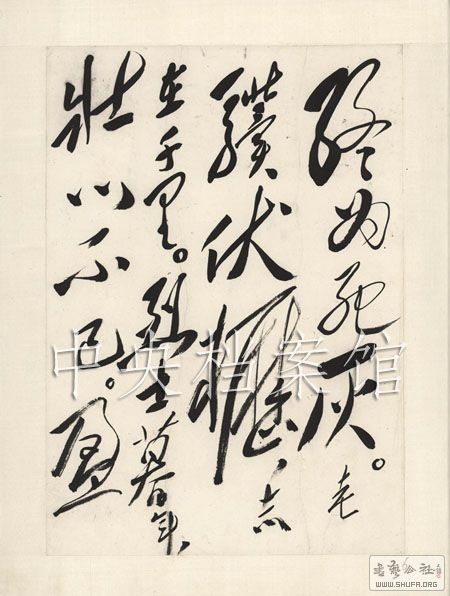 终为死灰。老
驥伏櫪、志
在千里。烈士暮年、
壮心不已。盈
中央档案馆
书艺公社
WWW.SHUFA.ORG